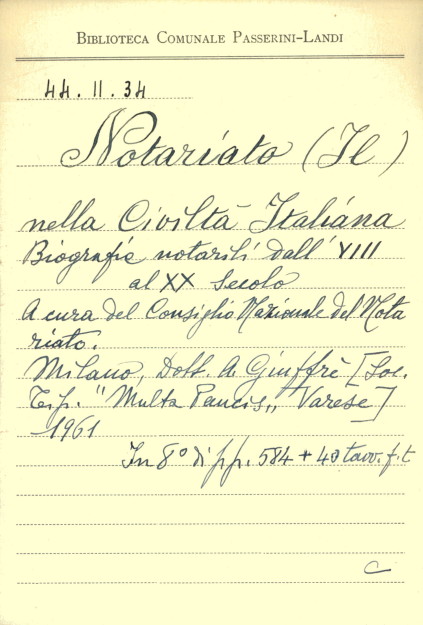 BIBLIOTECA COMUNALE PASSERINI-LANDI
44.II.34
Notariato (Il)
nella Civiltà Italiana
Biografie notarili dall'VIII
al XX Secolo
A cura del Consiglio Nazionale del Nota
riato.
Milano, Dott. A. Giuffrè [Soc.
Tip. "Multa Paucis„ Varese]
1961
In 8° di pp. 584 + 40 tavv. f. t
C